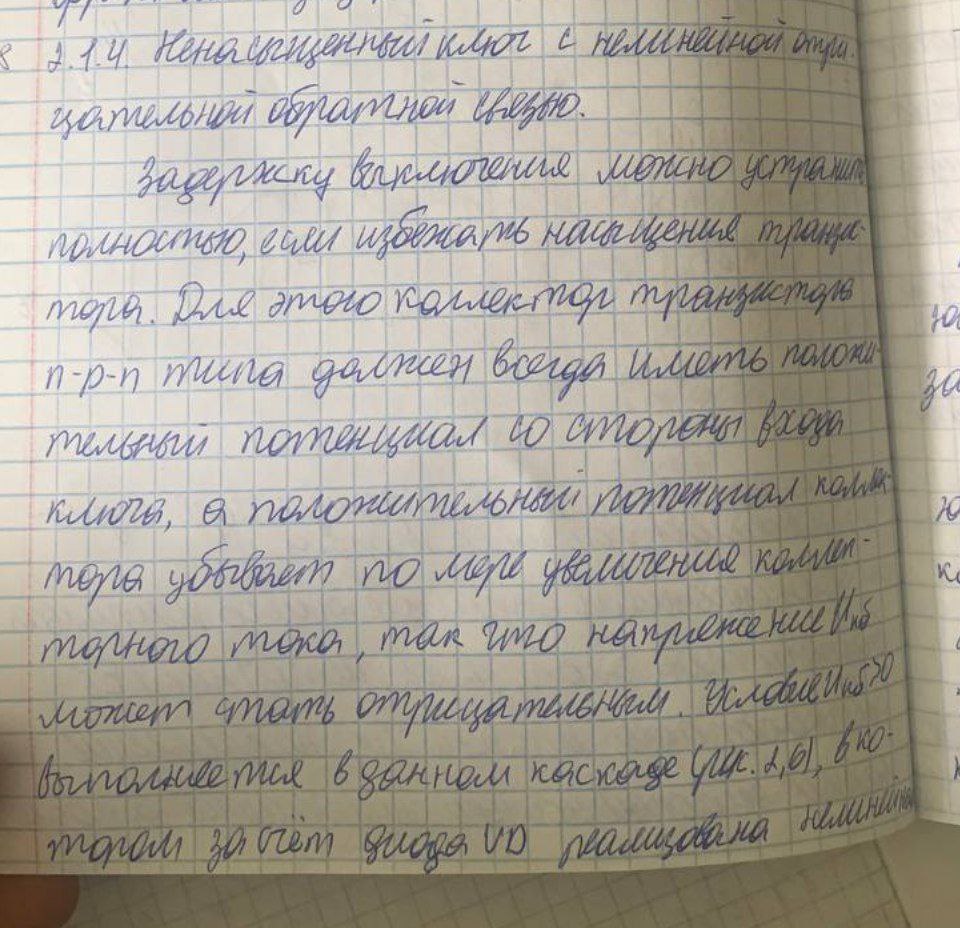 2.1.4. Ненасыщенный ключ с нелинейной отри-
цательной обратной связью.
Задержку выключения можно устранить
полностью, если избежать насыщения транзис-
тора. Для этого коллектор транзистора
n-p-n типа должен всегда иметь положи-
тельный потенциал со стороны входа
ключа, а положительный потенциал коллек-
тора убывает по мере увеличения коллек-
торного тока, так что напряжение Uкб
может стать отрицательным. Условие Uкб>0
выполняется в данном каскаде (рис. 2,б), в ко-
тором за счёт диода VD реализована нелинейная